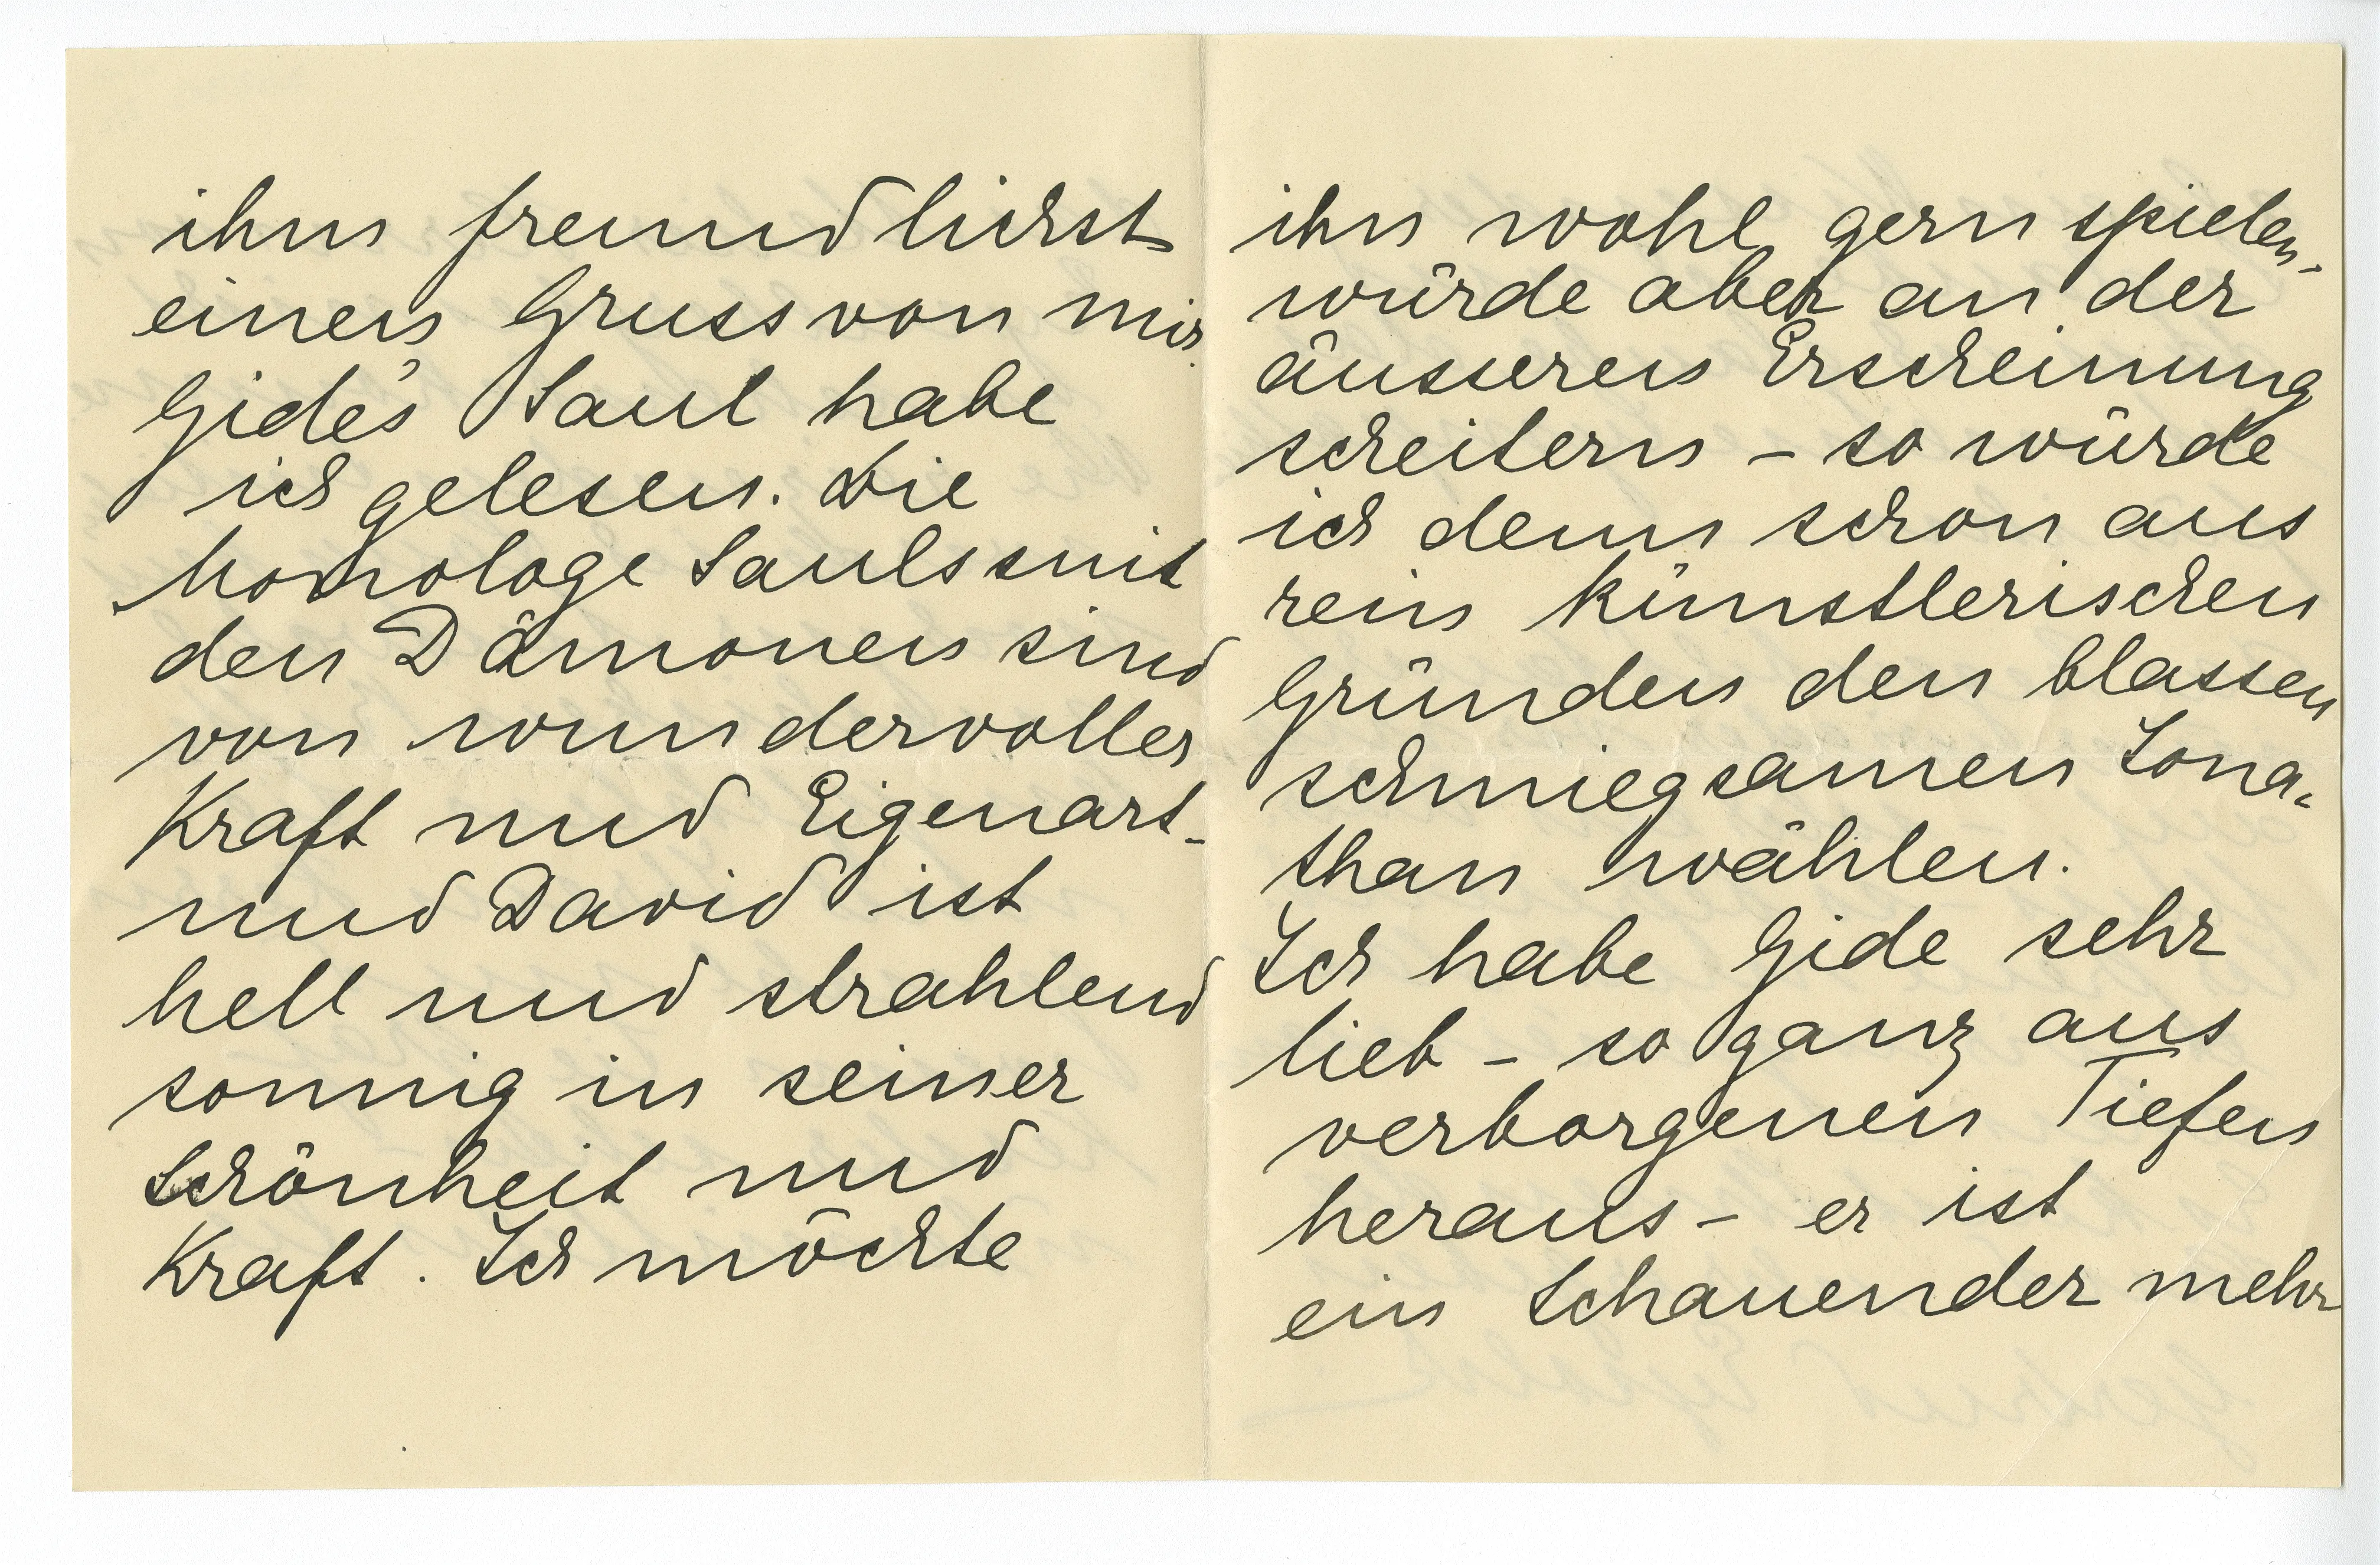 ihm freundlichst
einen Gruss von mir.
Gide's Saul habe
ich gelesen. Die
Monologe Sauls mit
den Dämonen sind
von wundervoller
Kraft und Eigenart-
und David ist
hell und strahlend
sonnig in seiner
Schönheit und
Kraft. Ich möchte
ihn wohl gern spielen-
würde aber an der
äusseren Erscheinung
scheitern – so würde
ich denn schon aus
rein künstlerischen
Gründen den blassen
schmiegsamen Jona-
than wählen.
Ich habe Gide sehr
lieb – so ganz aus
verborgenen Tiefen
heraus – er ist
ein Schauender mehr